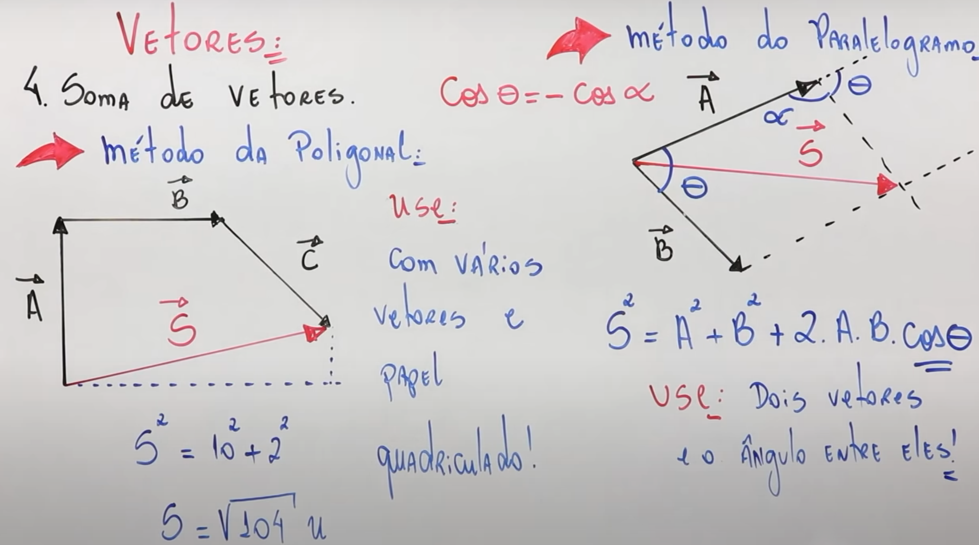 Vetores:
4. Soma de vetores.
método da Poligonal:
B
A
C
S
S² = 10² + 2²
S = √104 u
Use:
Com vários
vetores e
papel
quadriculado!
método do Paralelogramo
Cos θ = - cos α
A
θ
α
S
θ
B
S² = A² + B² + 2. A. B. cos θ
Use: Dois vetores
e o ângulo entre eles!